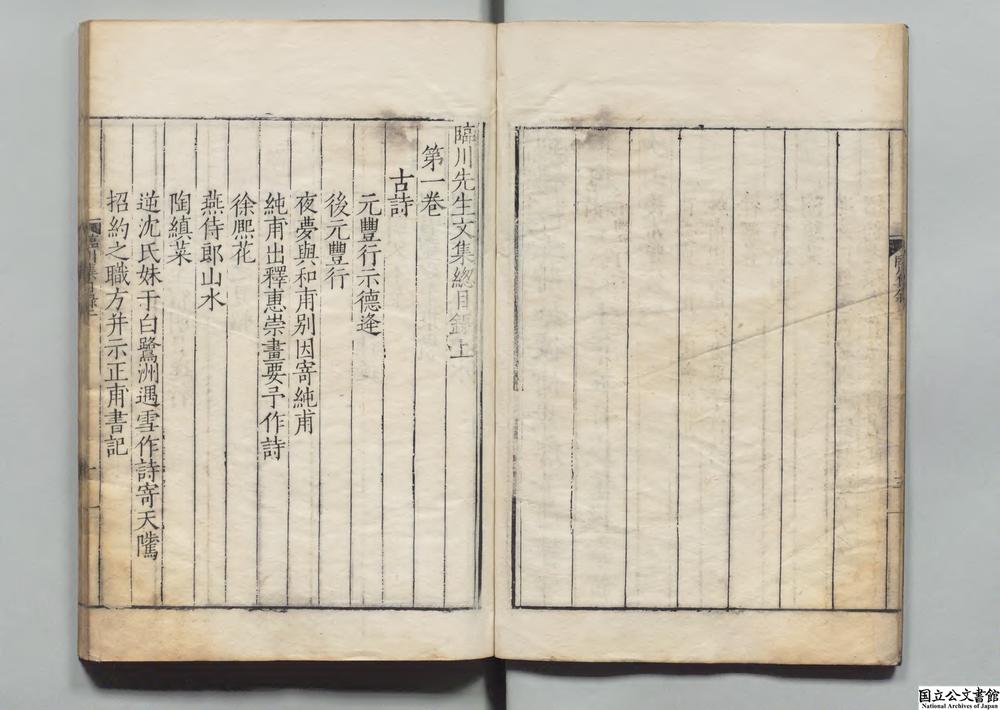 臨川先生文集總目録上
第一巻
古詩
元豐行示德逢
後元豐行
夜夢與和甫别因寄純甫
純甫出釋惠崇畫要予作詩
徐熈花
燕侍郎山水
陶縝菜
逆沈氏妹于白鷺洲遇雪作詩寄天隲
招約之職方并示正甫書記
国立公文書館
National Archives of Japan